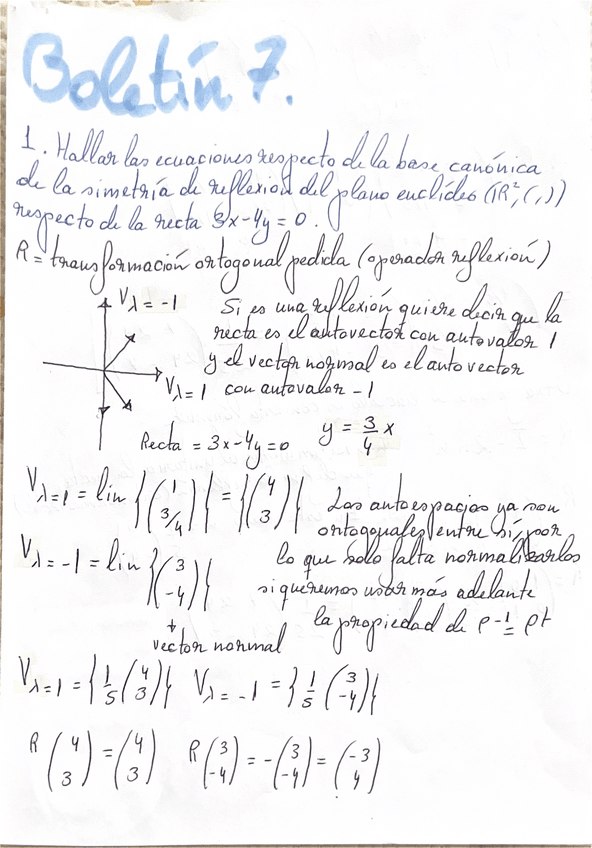 Boletín 7.
1. Hallar las ecuaciones respecto de la base canónica
de la simetría de reflexión del plano euclídeo (ℝ², ⟨,⟩)
respecto de la recta 3x-4y=0.
R = transformación ortogonal pedida (operador reflexión)
V λ=-1
Si es una reflexión quiere decir que la
recta es el autovector con autovalor 1
y el vector normal es el autovector
V λ=1 con autovalor -1
Recta = 3x-4y=0 y = 3/4 x
V λ=1 = lin {(1, 3/4)} = {(4, 3)} Los autoespacios ya son
ortogonales entre sí, por
V λ=-1 = lin {(3, -4)} lo que sólo falta normalizarlos
si queremos usar más adelante
la propiedad de P⁻¹ = Pt
vector normal
V λ=1 = {1/5 (4, 3)} V λ=-1 = {1/5 (3, -4)}
R (4, 3) = (4, 3) R (3, -4) = -(3, -4) = (-3, 4)